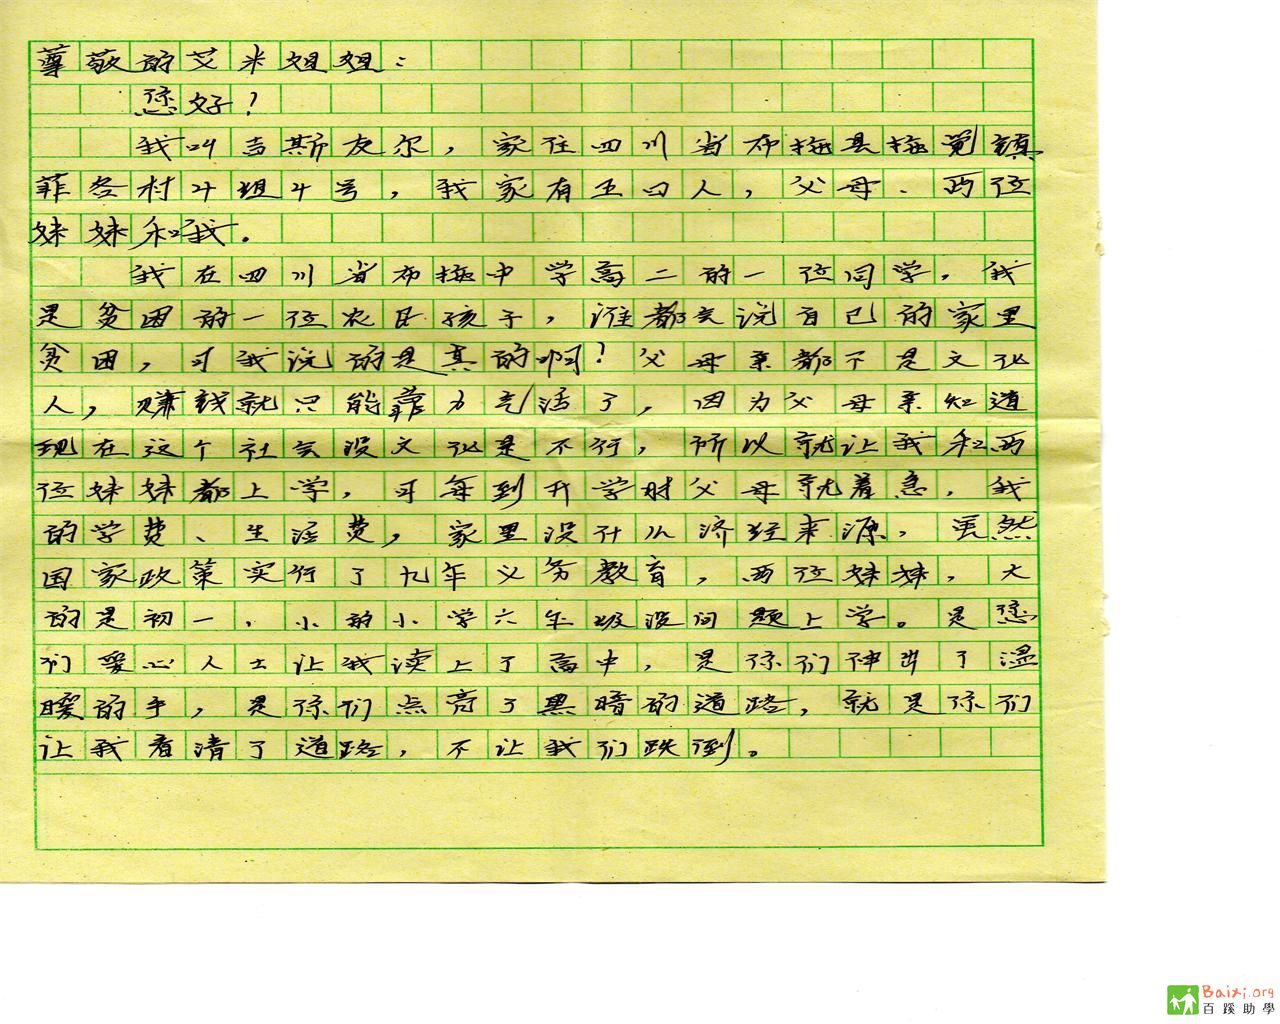 尊敬的艾米姐姐：
您好？
我叫吉斯友尔，家住四川省布拖县拖觉镇
菲各村4组4号，我家有五口人，父母、两位
妹妹和我。
我在四川省布拖中学高二的一位同学，我
是贫困的一位农民孩子，谁都会说自己的家里
贫困，可我说的是真的啊？父母亲都不是文化
人，赚钱就只能靠力气活了，因为父母亲知道
现在这个社会没文化是不行，所以就让我和两
位妹妹都上学，可每到开学时父母就着急，我
的学费、生活费，家里没什么济经来源，虽然
国家政策实行了九年义务教育，两位妹妹，大
的是初一，小的小学六年级没问题上学。是您
们爱心人士让我读上了高中，是你们伸出了温
暖的手，是你们点亮了黑暗的道路，就是你们
让我看清了道路，不让我们跌倒。
Baixi.org
百蹊助學